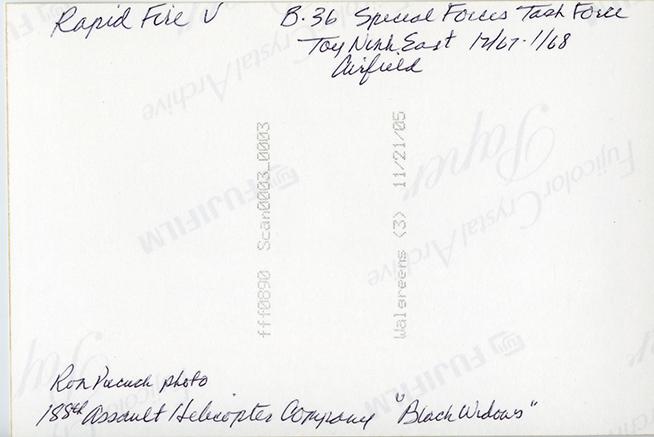 Rapid Fire V
B-36 Special Forces Task Force
Toy Ninh East 12/67-1/68
Airfield
fff0890 Scan0003_0003
Walgreens (3) 11/21/05
Fujicolor Crystal Archive
Paper
FUJIFILM
FUJIFILM
Ron photo
188th Assault Helicopter Company "Black Widows"